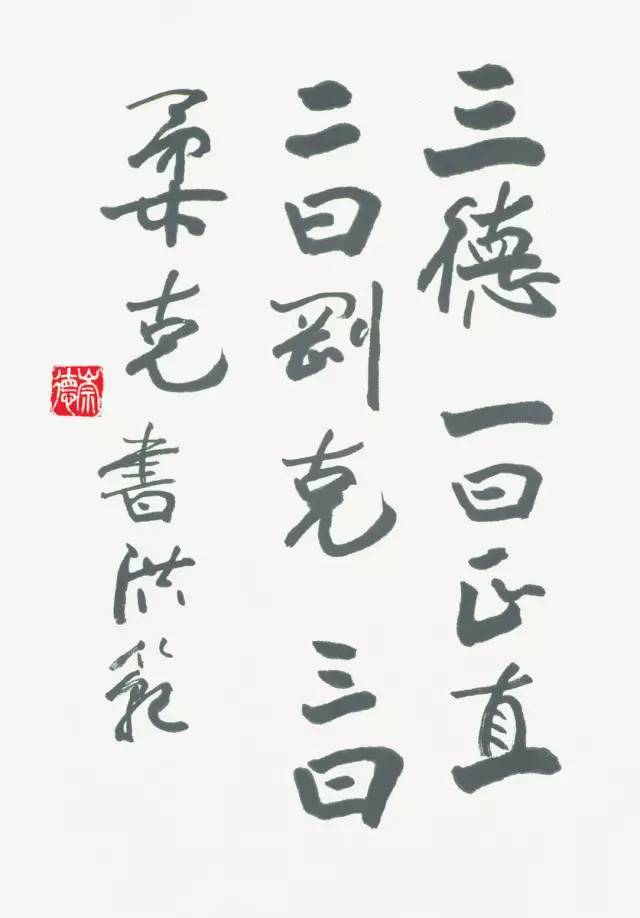 三德 一曰正直
二曰剛克 三曰
柔克 書洪範
崇德